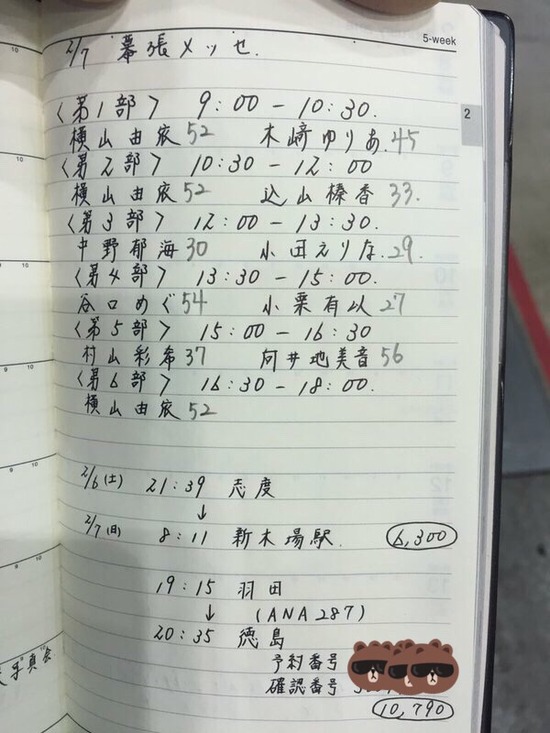 5-week
2/7 幕張メッセ.
2
〈第1部〉 9:00-10:30.
横山由依52 木﨑ゆりあ.45
〈第2部〉 10:30-12:00
横山由依52 込山榛香33.
〈第3部〉 12:00-13:30.
中野郁海30 小田えりな.29.
〈第4部〉 13:30-15:00.
谷口めぐ54 小栗有以27
〈第5部〉 15:00-16:30
村山彩希37 向井地美音56
〈第6部〉 16:30-18:00.
横山由依52
2/6(土) 21:39 志度
↓
2/7(日) 8:11 新木場駅. 6,300
19:15 羽田
↓ (ANA287)
20:35 徳島
予約番号
確認番号
10,790